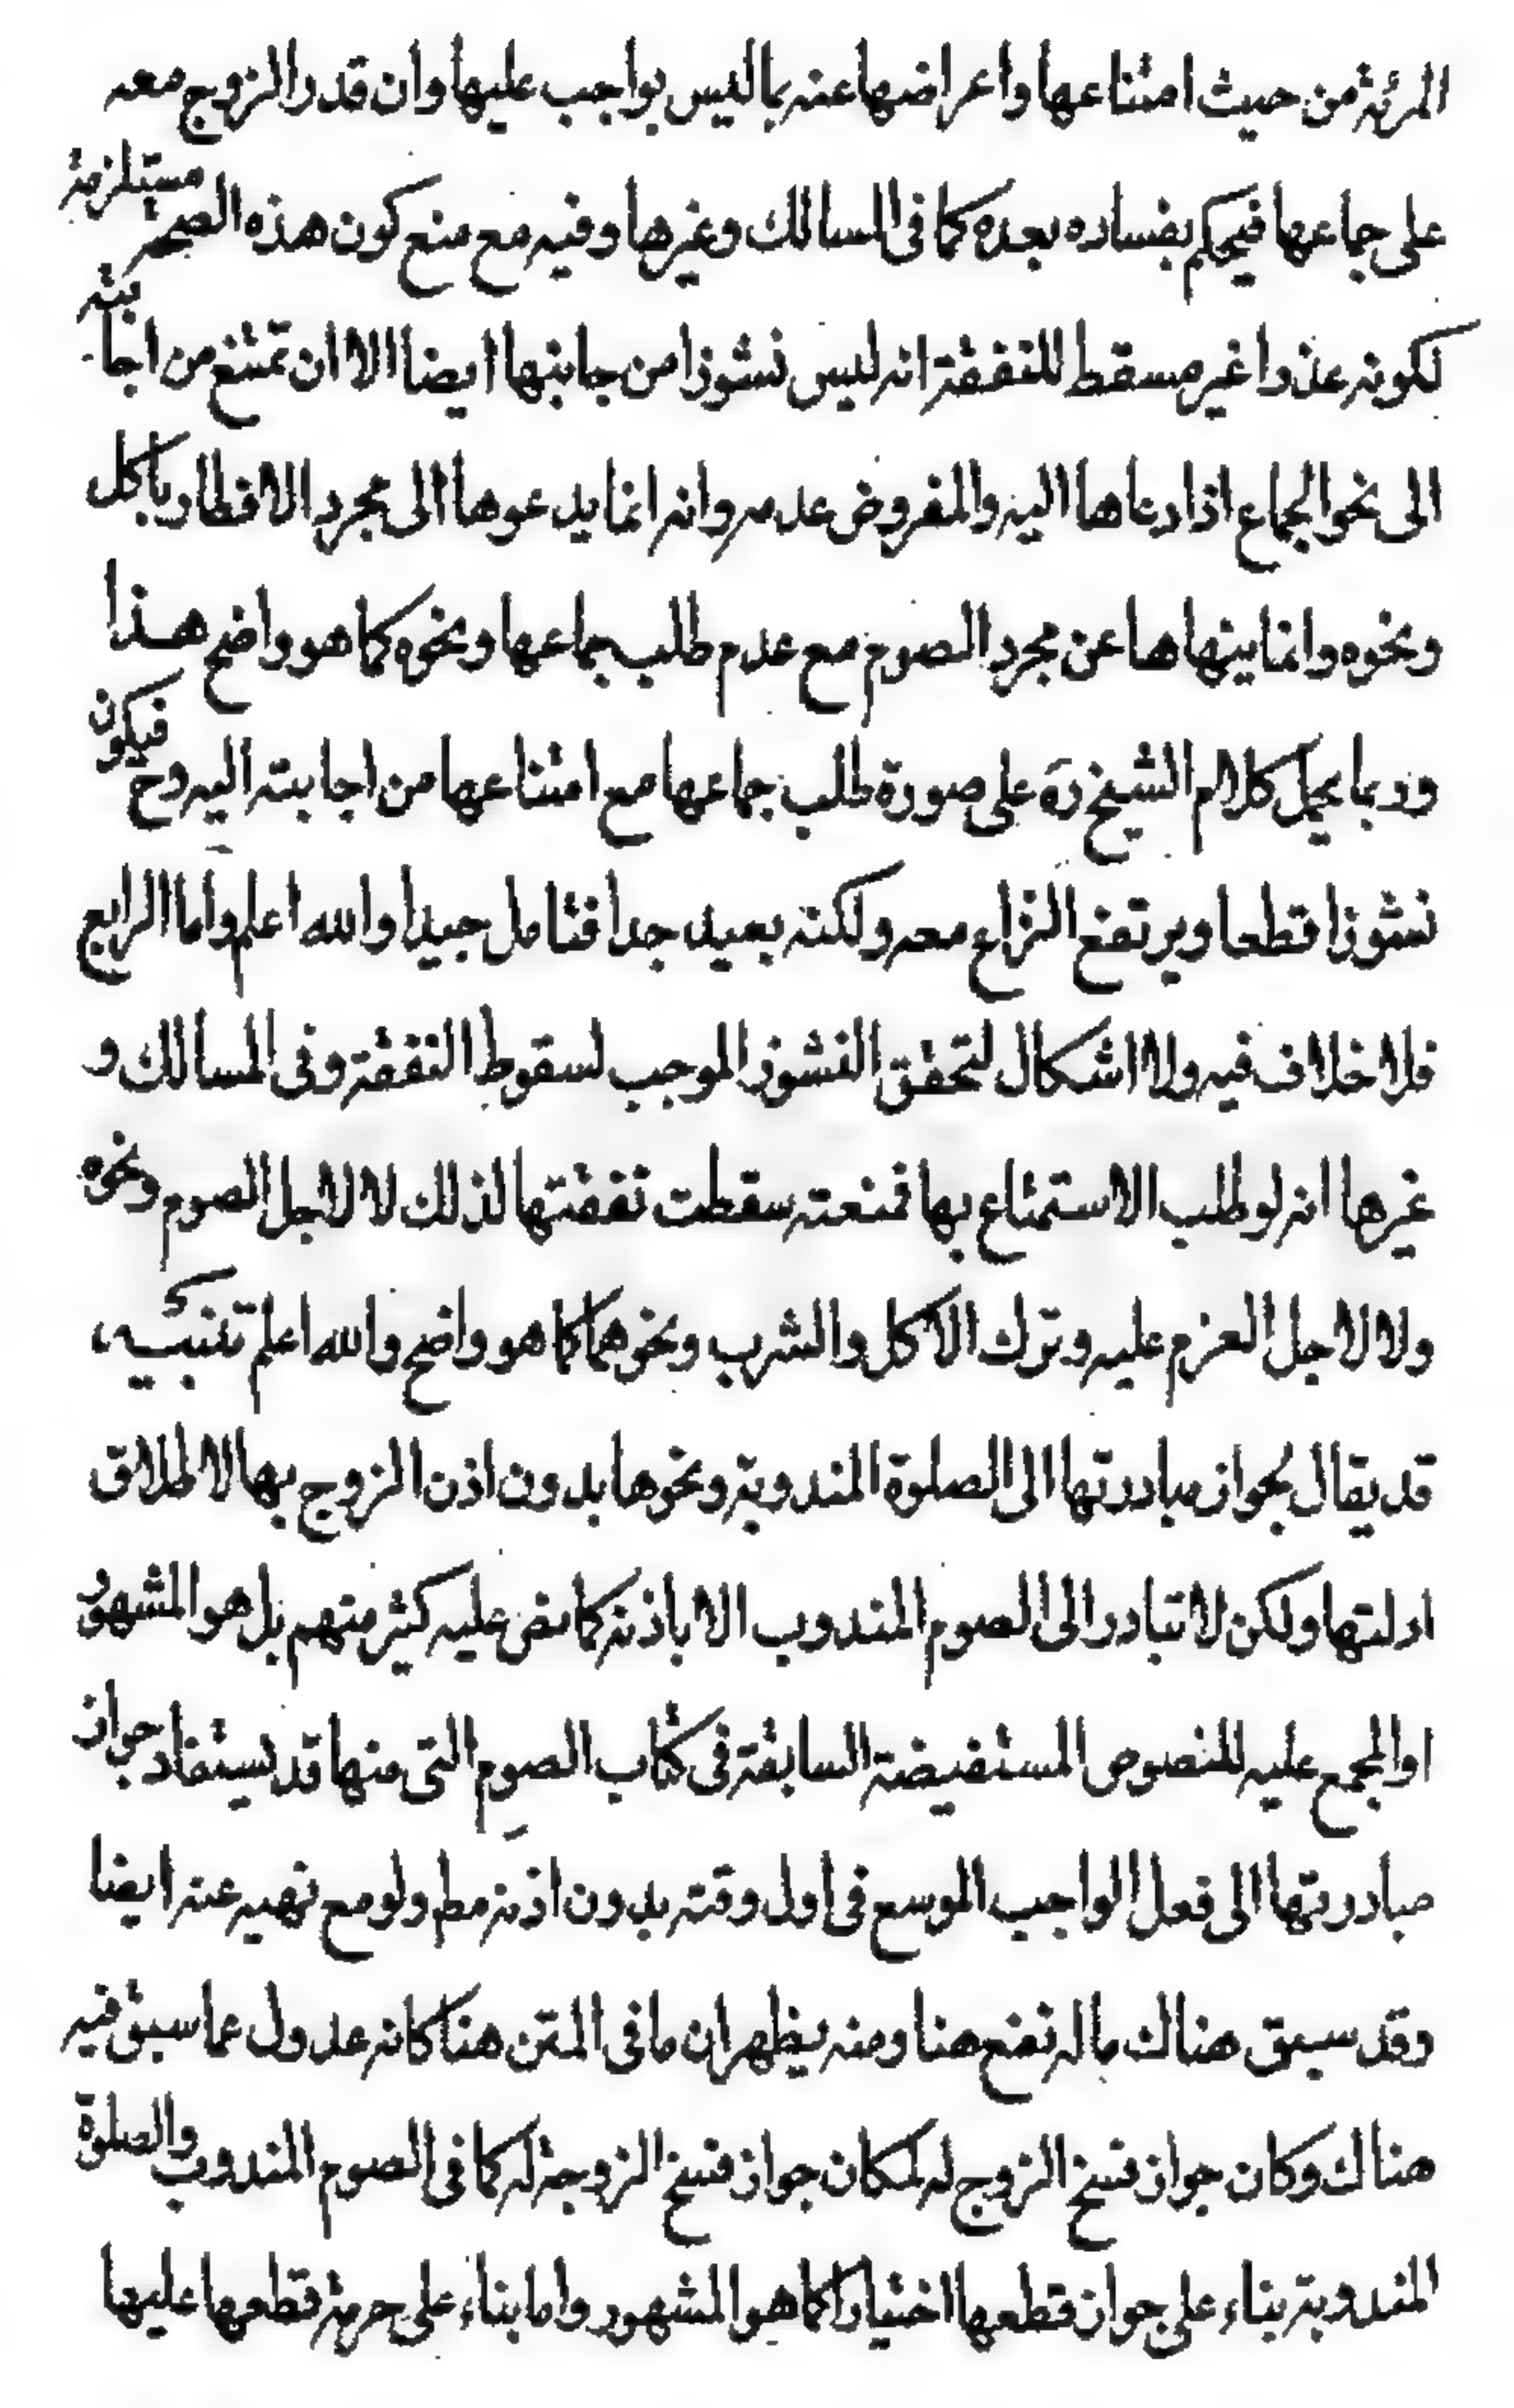 المرئة من حيث امتناعها واعراضها عنه بما ليس بواجب عليها وان قدر الزوج معه
على جماعها فيحكم بفساده بعده كما فى المسالك وغيرها وفيه مع منع كون هذه الصحة مستلزمة
لكونه عذرا غير مسقط للنفقة انه ليس نشوزا من جانبها ايضا الا ان تمتنع من اجابته
الى نحو الجماع اذا دعاها اليه والمفروض عدمه وانه انما يدعوها الى مجرد الافطار باكل
ونحوه وانما ينهاها عن مجرد الصوم مع عدم طلب جماعها ونحوه كما هو واضح هذا
وربما يحمل كلام الشيخ ره على صورة طلب جماعها مع امتناعها من اجابته اليه وح فيكون
نشوزا قطعا ويرتفع النزاع معه ولكنه بعيد جدا فتامل جيدا والله اعلم واما الرابع
فلا خلاف فيه ولا اشكال لتحقق النشوز الموجب لسقوط النفقة وفى المسالك و
غيرها انه لو طلب الاستمتاع بها فمنعته سقطت نفقتها لذلك لا لاجل الصوم ونحوه
ولا لاجل العزم عليه وترك الاكل والشرب ونحوهما كما هو واضح والله اعلم تنبيه
قد يقال بجواز مبادرتها الى الصلوة المندوبة ونحوها بدون اذن الزوج بها لاطلاق
ادلتها ولكن لا تبادر الى الصوم المندوب الا باذنه كما نص عليه كثير منهم بل هو المشهور
او المجمع عليه للنصوص المستفيضة السابقة فى كتاب الصوم التى منها قد يستفاد جواز
مبادرتها الى فعل الواجب الموسع فى اول وقته بدون اذنه مط ولو مع نهيه عنه ايضا
وقد سبق هناك ماله نفع هنا ومنه يظهر ان ما فى المتن هنا كانه عدول عما سبق فيه
هناك وكان جواز فسخ الزوج له لمكان جواز فسخ الزوجة له كما فى الصوم المندوب والصلوة
المندوبة بناء على جواز قطعها اختيارا كما هو المشهور واما بناء على حرمة قطعها عليها